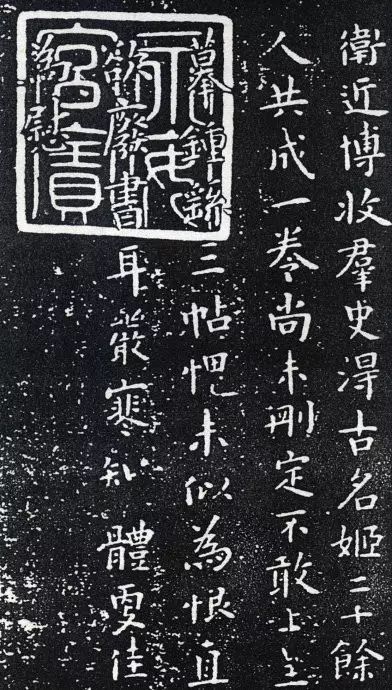 衛近博收羣史淂古名姬二十餘
人共成一卷尚未刪定不敢上
摹鍾繇三帖愧未似為恨直
欲廢書耳嚴寒知體佳
為慰